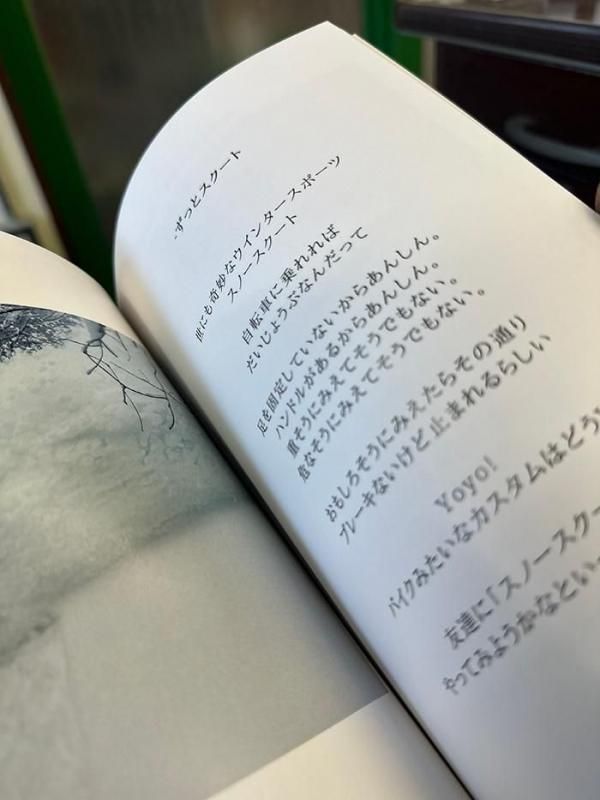 -ずっとスクート
世にも奇妙なウインタースポーツ
スノースクート
自転車に乗れれば
だいじょうぶなんだって
足を固定していないからあんしん。
ハンドルがあるからあんしん。
重そうにみえてそうでもない。
危なそうにみえてそうでもない。
おもしろそうにみえたらその通り
ブレーキないけど止まれるらしい
Yoyo!
バイクみたいなカスタムはどう
友達に「スノースクー
やってみようかなといっ